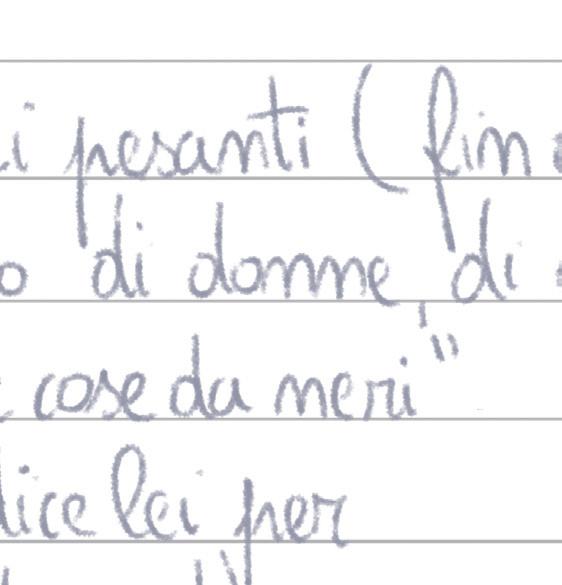 i pesanti (fin
o di donne, di
cose da neri"
lice lei per